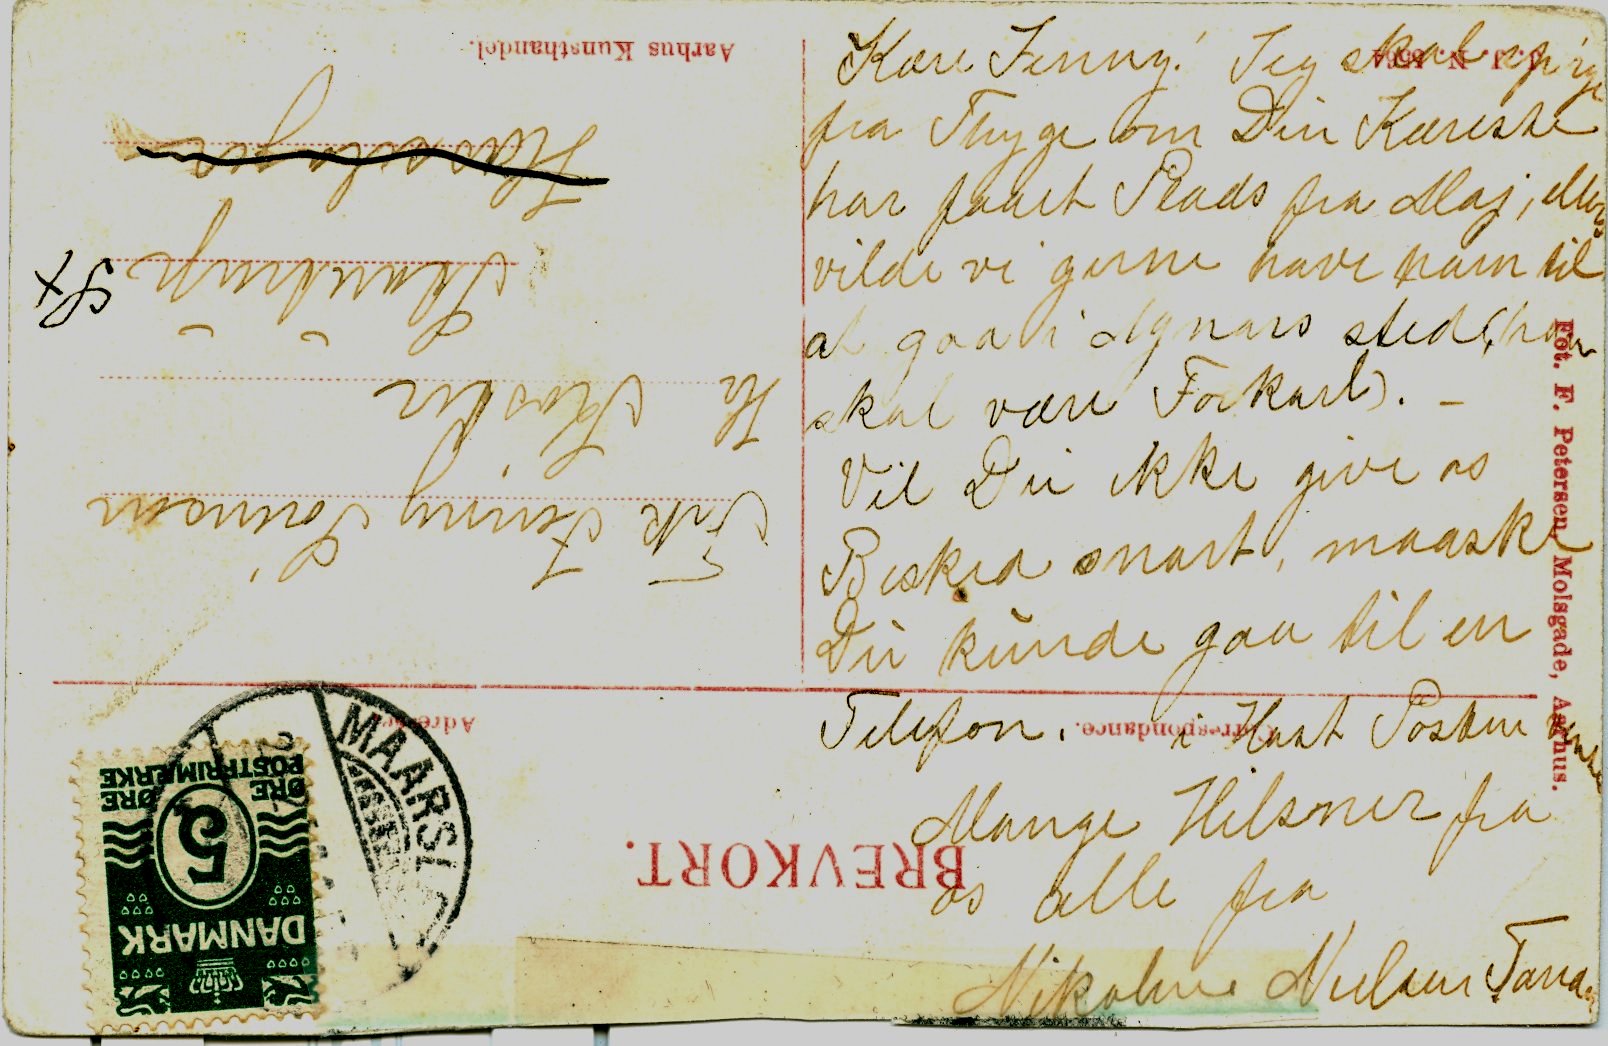 Kære Jenny! Jeg skal spørge
fra Thyge om Din Kæreste
har faaet Plads fra Maj, ellers
vilde vi gerne have ham til
at gaa i Agnars sted (han
skal være Forkarl). –
Vil Du ikke give os
Besked snart, maaske
Du kunde gaa til en
Telefon. i Hast Posten
Mange Hilsner fra
os alle fra
Nikoline Nielsen
Aarhus Kunsthandel.
J. J. N.
Fot. F. Petersen, Molsgade, Aarhus.
Correspondance.
Adresse.
BREVKORT.
Frk Jenny
Hr
i
St
MAARSL
5
ØRE ØRE
POSTFRIMÆRKE
DANMARK